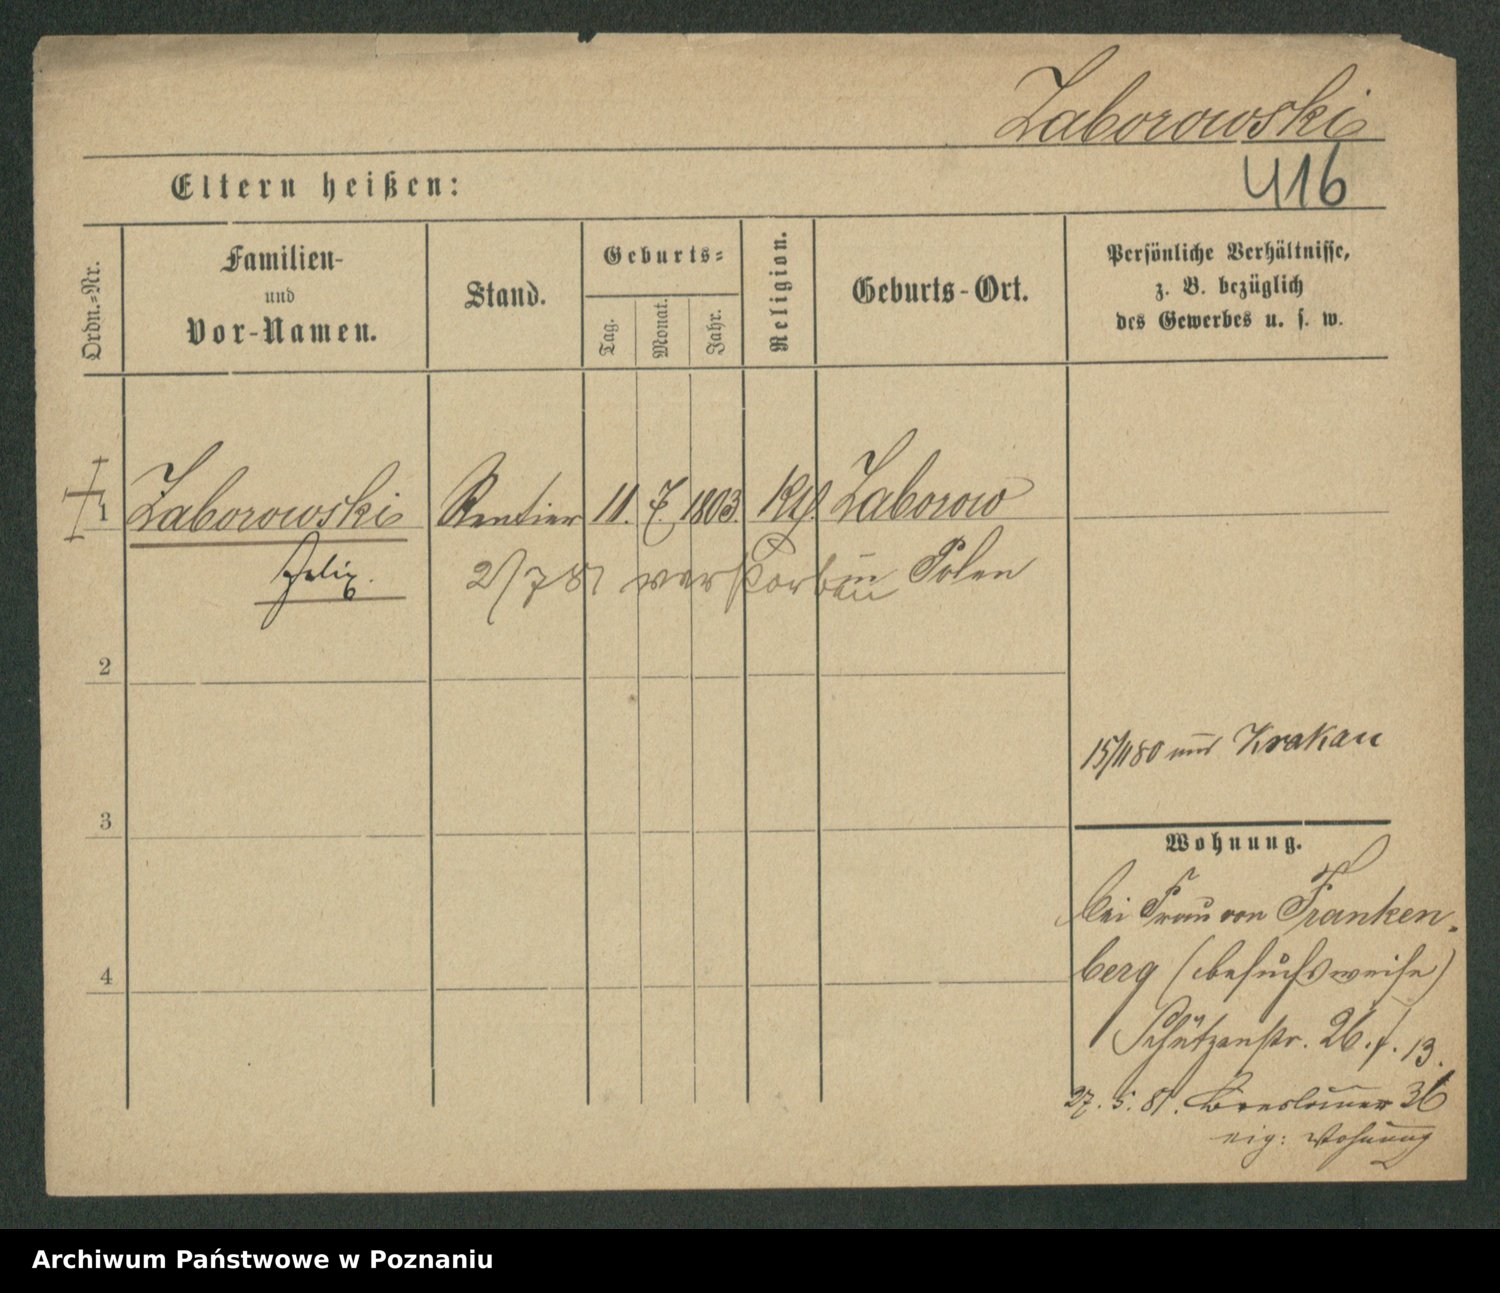 Zaborowski
416
Eltern heißen:
Ordn.=Nr.
Familien-
und
Vor-Namen.
Stand.
Geburts=
Tag.
Monat.
Jahr.
Religion.
Geburts-Ort.
Persönliche Verhältnisse,
z. B. bezüglich
des Gewerbes u. s. w.
1 Zaborowski Rentier 11. 7. 1803. Zaborow
Felix. 2/7 81 verstorben in Polen
2
15/11 80 aus Krakau
3
Wohnung.
bei Frau von Franken-
berg (besuchsweise)
4
Schützenstr. 26. 13.
27. 5. 81. Breslauer 36
eig: Wohnung
Archiwum Państwowe w Poznaniu